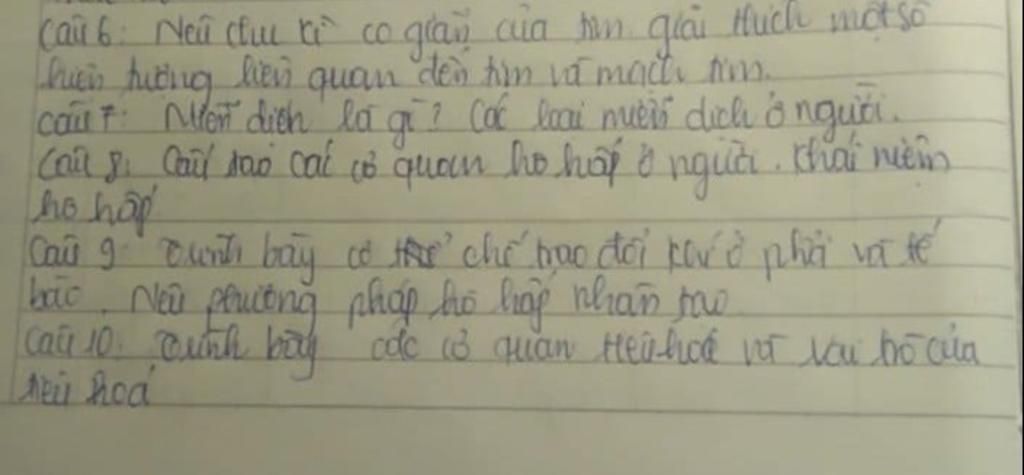 Câu 6: Nêu chu kì co giãn của tim. giải thích một số
hiện tượng liên quan đến tim và mạch tim.
Câu 7: Miễn dịch là gì? Các loại miễn dịch ở người.
Câu 8: Cấu tạo các cơ quan hô hấp ở người. Khái niệm
hô hấp
Câu 9: Trình bày cơ chế trao đổi khí ở phổi và tế
bào. Nêu phương pháp hô hấp nhân tạo
Câu 10: Trình bày các cơ quan tiêu hoá và vai trò của
tiêu hoá